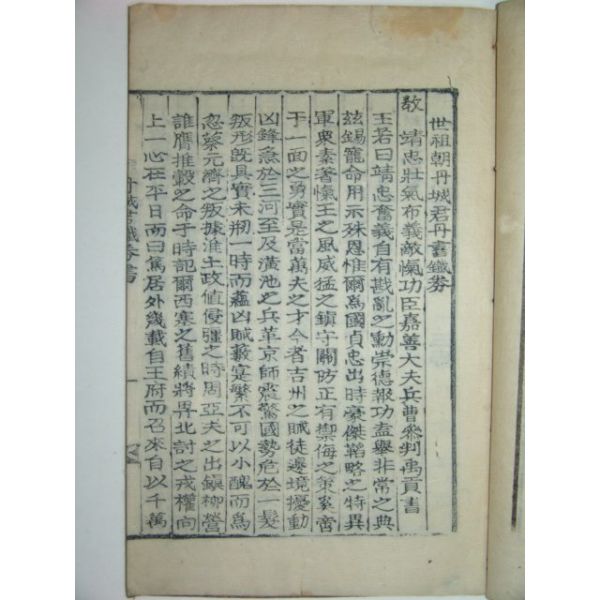 世祖朝丹城君丹書鐵券
教 靖忠壯氣布義敵愾功臣嘉善大夫兵曹參判禹貢書
王若曰靖忠奮義自有戡亂之勳崇德報功盍舉非常之典
玆錫寵命用示殊恩惟爾爲國貞忠出時豪傑韜略之特異
軍衆素著愾王之風威猛之鎭守關防正有禦侮之策奚啻
于一面之勇實是當萬夫之才今者吉州之賊徒邊境擾動
凶鋒急於三河至及潢池之兵革京師震驚國勢危於一髮
叛形旣具實未剏一時而蘊凶賊藪寔繁不可以小醜而爲
忽蔡元濟之叛據淮土政値侵疆之時周亞夫之出鎭柳營
誰膺推轂之命于時記爾西塞之舊績將畀北討之戎權向
上一心在平日而曰篤居外幾載自王府而召來自以千萬
丹城君鐵券書
一